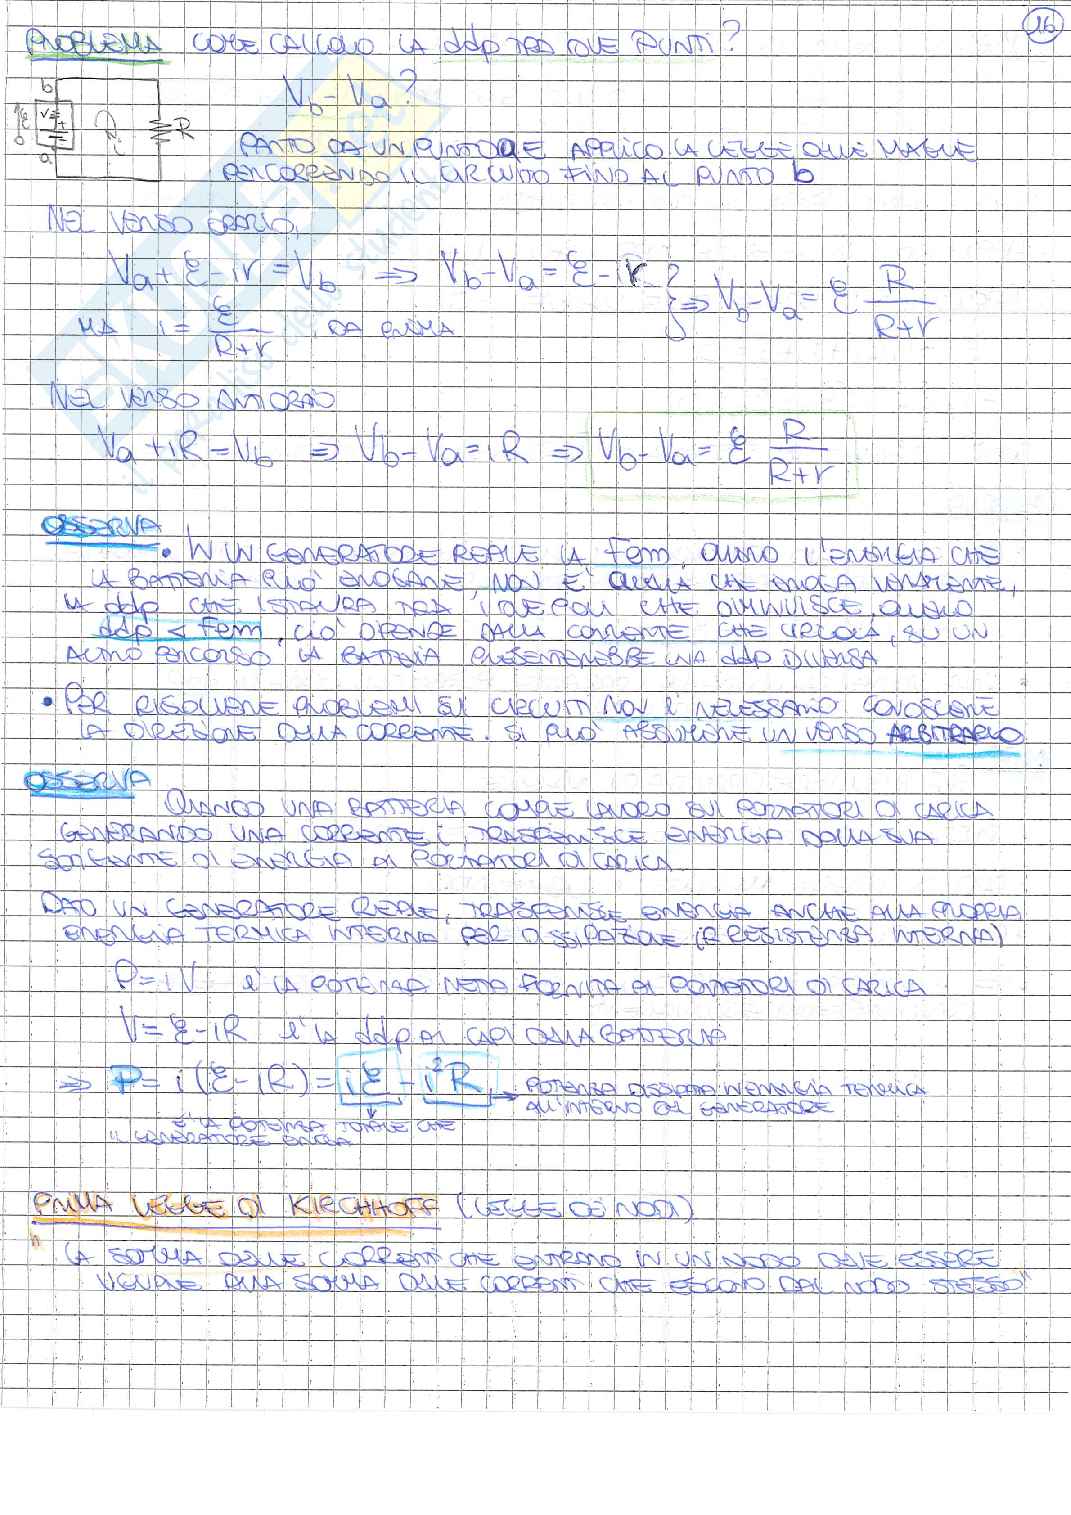 16
PROBLEMA COME CALCOLO LA ddp TRA DUE PUNTI?
Vb - Va?
b
ε r a i R
PARTO DA UN PUNTO a E APPLICO LA LEGGE DELLE MAGLIE
PERCORRENDO IL CIRCUITO FINO AL PUNTO b
NEL VERSO ORARIO,
Va + ε - ir = Vb ⇒ Vb - Va = ε - ir } ⇒ Vb - Va = ε R/(R+r)
MA i = ε/(R+r) DA PRIMA
NEL VERSO ANTIORARIO
Va + iR = Vb ⇒ Vb - Va = iR ⇒ Vb - Va = ε R/(R+r)
OSSERVA
• IN UN GENERATORE REALE LA fem, OVVERO L'ENERGIA CHE
LA BATTERIA PUÒ EROGARE, NON È QUELLA CHE EROGA VERAMENTE,
LA ddp CHE ISTAURA TRA I DUE POLI CHE DIMINUISCE, QUINDI
ddp < fem, CIÒ DIPENDE DALLA CORRENTE CHE CIRCOLA, SU UN
ALTRO PERCORSO LA BATTERIA PRESENTEREBBE UNA ddp DIVERSA
• PER RISOLVERE PROBLEMI SUI CIRCUITI NON È NECESSARIO CONOSCERE
LA DIREZIONE DELLA CORRENTE. SI PUÒ ASSUMERE UN VERSO ARBITRARIO
OSSERVA
QUANDO UNA BATTERIA COMPIE LAVORO SUI PORTATORI DI CARICA
GENERANDO UNA CORRENTE i, TRASFERISCE ENERGIA DALLA SUA
SORGENTE DI ENERGIA AI PORTATORI DI CARICA
DATO UN GENERATORE REALE, TRASFERISCE ENERGIA ANCHE ALLA PROPRIA
ENERGIA TERMICA INTERNA PER DISSIPAZIONE (R RESISTENZA INTERNA)
P = iV È LA POTENZA NETTA FORNITA AI PORTATORI DI CARICA
V = ε - iR È LA ddp AI CAPI DELLA BATTERIA
⇒ P = i(ε - iR) = iε - i²R → POTENZA DISSIPATA IN ENERGIA TERMICA
ALL'INTERNO DEL GENERATORE
È LA POTENZA TOTALE CHE
IL GENERATORE EROGA
PRIMA LEGGE DI KIRCHHOFF (LEGGE DEI NODI)
"LA SOMMA DELLE CORRENTI CHE ENTRANO IN UN NODO DEVE ESSERE
UGUALE ALLA SOMMA DELLE CORRENTI CHE ESCONO DAL NODO STESSO"